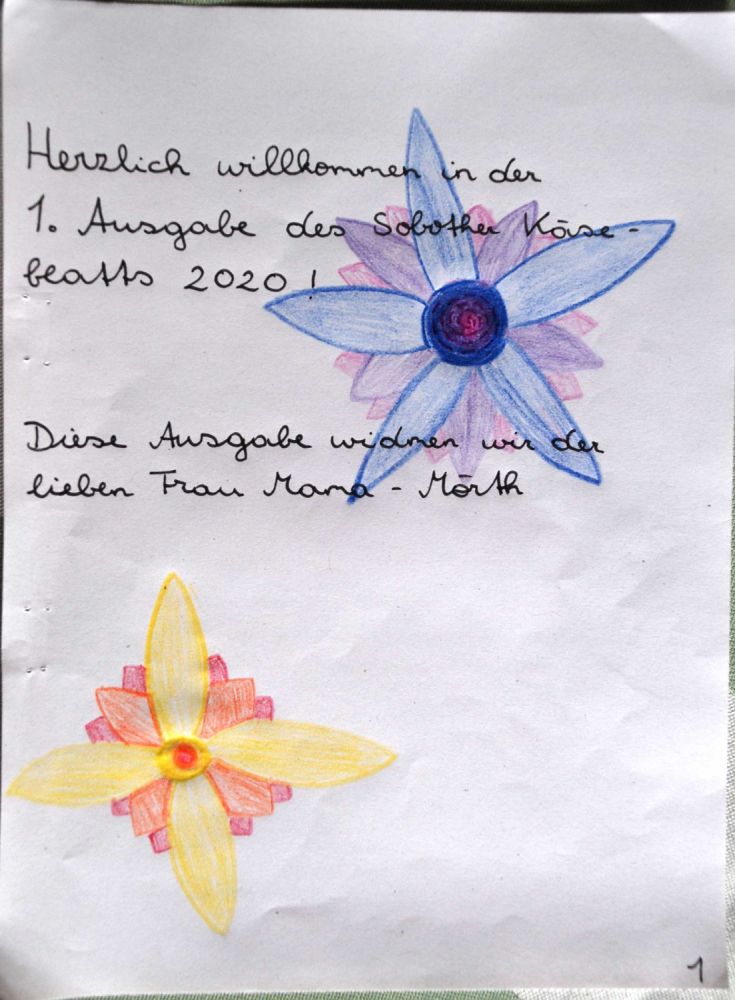 Herzlich willkommen in der
1. Ausgabe des Sobother Käse-
blatts 2020 !
Diese Ausgabe widmen wir der
lieben Frau Mama - Mörth
1